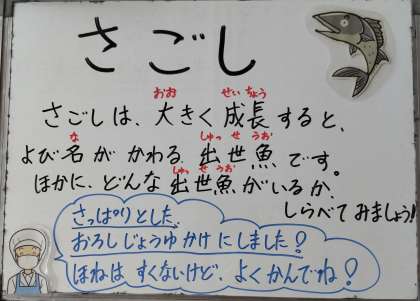 さごし
おお せいちょう
さごしは、大きく成長すると、
な しゅっ せ うお
よび名がかわる出世魚です。
しゅっ せ うお
ほかに、どんな出世魚がいるか、
しらべてみましょう!
さっぱりとした、
おろしじょうゆかけにしました!
ほねはすくないけど、よくかんでね!